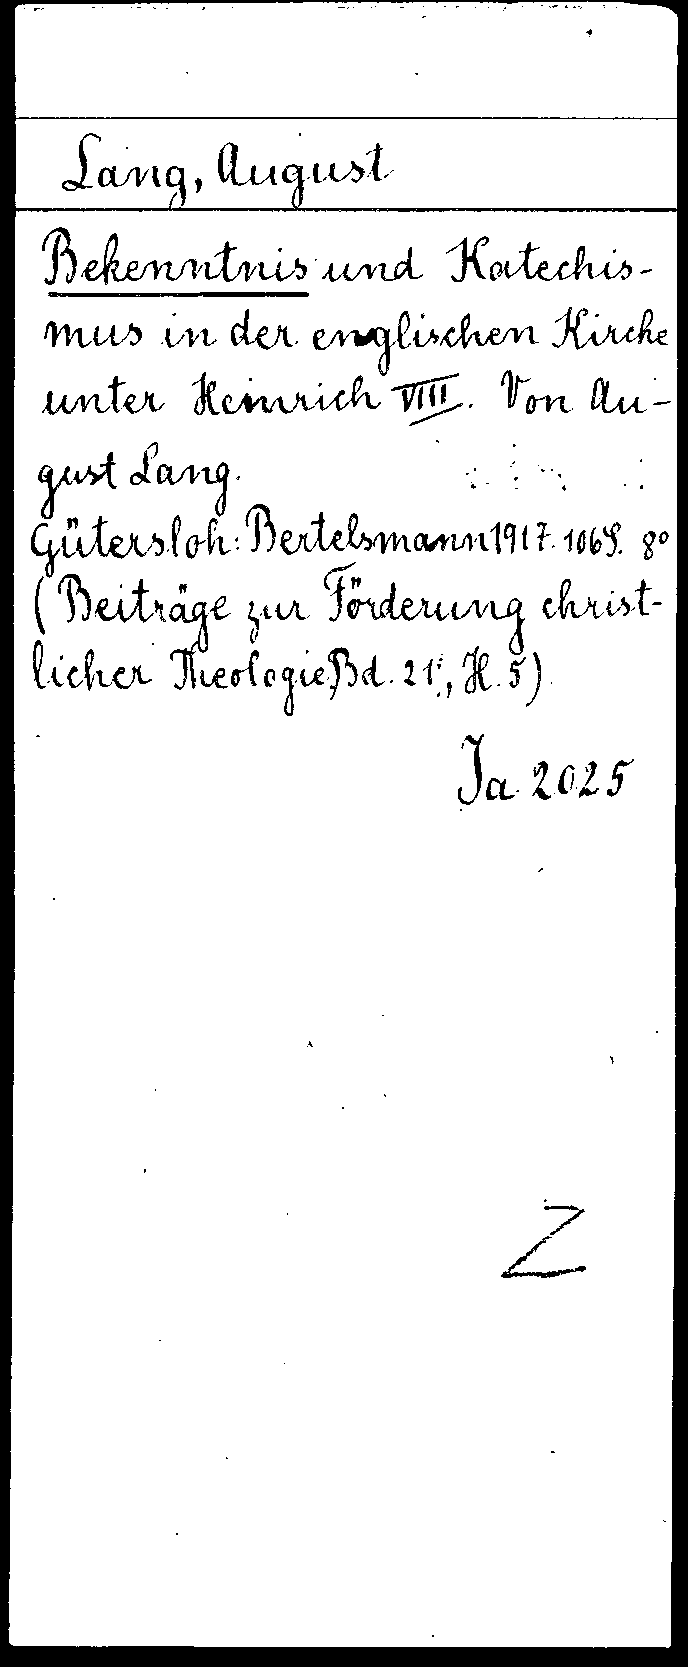 Lang, August
Bekenntnis und Katechis-
mus in der englischen Kirche
unter Heinrich VIII. Von Au-
gust Lang.
Gütersloh: Bertelsmann 1917. 106 S. 8°
(Beiträge zur Förderung christ-
licher Theologie, Bd. 21, H. 5)
Ja 2025
Z